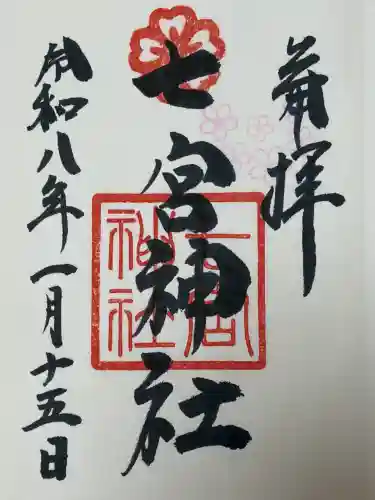 奉拝
七宮神社
七宮神社
令和八年一月十五日